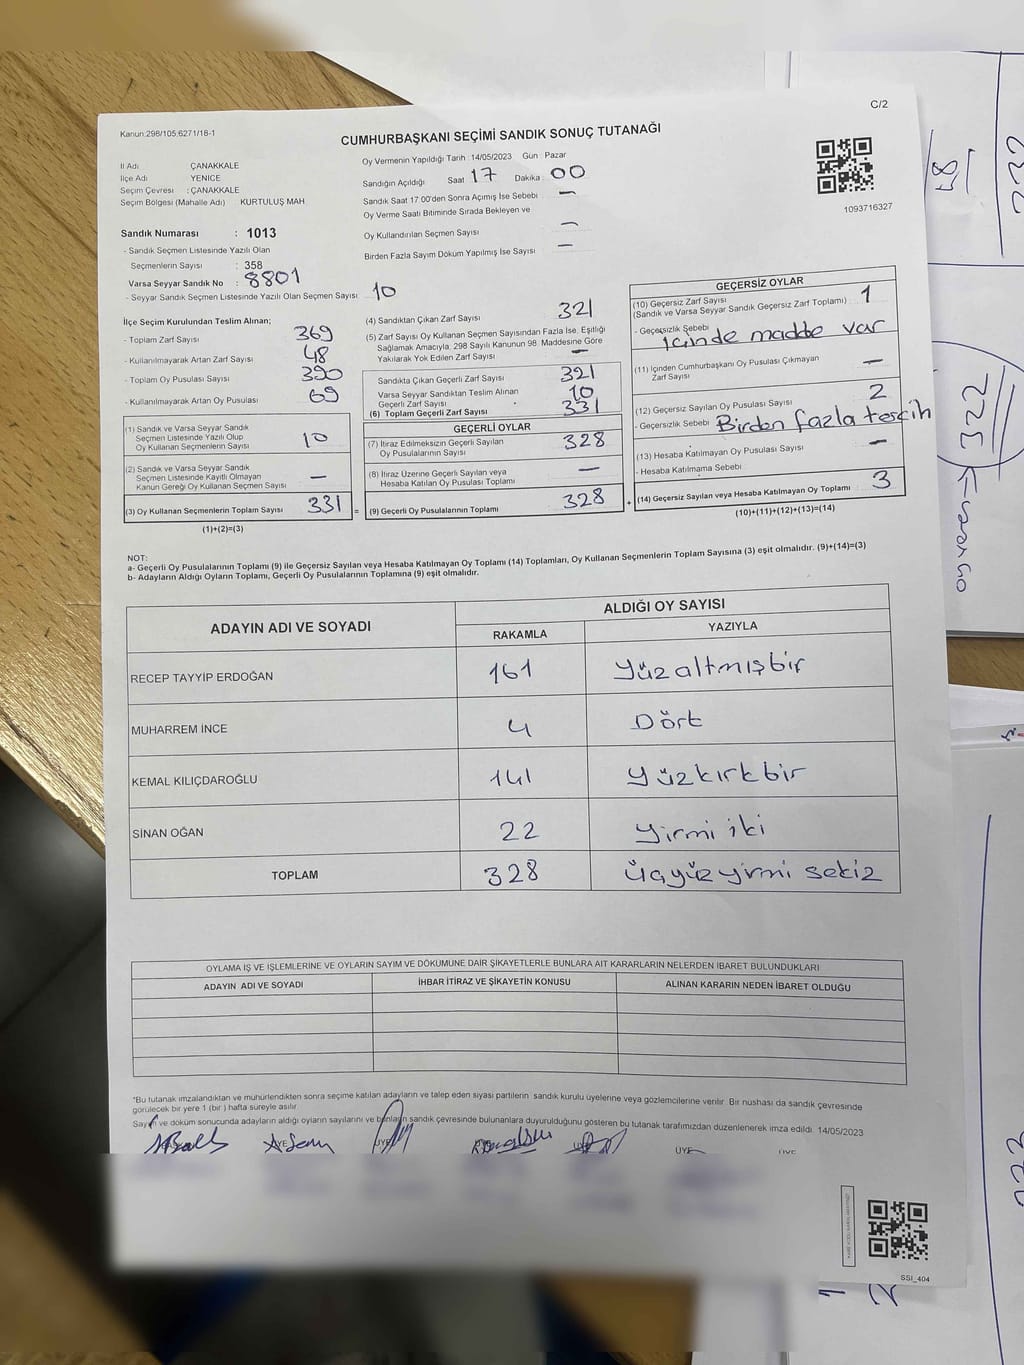 C/2
Kanun:298/105.6271/18-1
CUMHURBAŞKANI SEÇİMİ SANDIK SONUÇ TUTANAĞI
İl Adı ÇANAKKALE
İlçe Adı YENİCE
Seçim Çevresi : ÇANAKKALE
Seçim Bölgesi (Mahalle Adı) KURTULUŞ MAH
Oy Vermenin Yapıldığı Tarih : 14/05/2023 Gün : Pazar
Sandığın Açıldığı Saat 17 Dakika : 00
Sandık Saat 17 00'den Sonra Açımış İse Sebebi —
Oy Verme Saati Bitiminde Sırada Bekleyen ve
Oy Kullandırılan Seçmen Sayısı —
Birden Fazla Sayım Döküm Yapılmış İse Sayısı —
1093716327
Sandık Numarası : 1013
- Sandık Seçmen Listesinde Yazılı Olan
Seçmenlerin Sayısı : 358
Varsa Seyyar Sandık No : 8801
- Seyyar Sandık Seçmen Listesinde Yazılı Olan Seçmen Sayısı 10
İlçe Seçim Kurulundan Teslim Alınan;
- Toplam Zarf Sayısı 369
- Kullanılmayarak Artan Zarf Sayısı 48
- Toplam Oy Pusulası Sayısı 390
- Kullanılmayarak Artan Oy Pusulası 69
(1) Sandık ve Varsa Seyyar Sandık
Seçmen Listesinde Yazılı Olup
Oy Kullanan Seçmenlerin Sayısı 10
(2) Sandık ve Varsa Seyyar Sandık
Seçmen Listesinde Kayıtlı Olmayan
Kanun Gereği Oy Kullanan Seçmen Sayısı —
(3) Oy Kullanan Seçmenlerin Toplam Sayısı 331
(1)+(2)=(3)
(4) Sandıktan Çıkan Zarf Sayısı 321
(5) Zarf Sayısı Oy Kullanan Seçmen Sayısından Fazla İse, Eşitliği
Sağlamak Amacıyla, 298 Sayılı Kanunun 98. Maddesine Göre
Yakılarak Yok Edilen Zarf Sayısı —
Sandıkta Çıkan Geçerli Zarf Sayısı 321
Varsa Seyyar Sandıktan Teslim Alınan
Geçerli Zarf Sayısı 10
(6) Toplam Geçerli Zarf Sayısı 331
GEÇERLİ OYLAR
(7) İtiraz Edilmeksizin Geçerli Sayılan
Oy Pusulalarının Sayısı 328
(8) İtiraz Üzerine Geçerli Sayılan veya
Hesaba Katılan Oy Pusulası Toplamı —
= (9) Geçerli Oy Pusulalarının Toplamı 328
GEÇERSİZ OYLAR
(10) Geçersiz Zarf Sayısı
(Sandık ve Varsa Seyyar Sandık Geçersiz Zarf Toplamı) 1
- Geçersizlik Sebebi içinde madde var
(11) İçinden Cumhurbaşkanı Oy Pusulası Çıkmayan
Zarf Sayısı —
(12) Geçersiz Sayılan Oy Pusulası Sayısı 2
- Geçersizlik Sebebi Birden fazla tercih
(13) Hesaba Katılmayan Oy Pusulası Sayısı —
- Hesaba Katılmama Sebebi
+ (14) Geçersiz Sayılan veya Hesaba Katılmayan Oy Toplamı 3
(10)+(11)+(12)+(13)=(14)
NOT:
a- Geçerli Oy Pusulalarının Toplamı (9) ile Geçersiz Sayılan veya Hesaba Katılmayan Oy Toplamı (14) Toplamları, Oy Kullanan Seçmenlerin Toplam Sayısına (3) eşit olmalıdır. (9)+(14)=(3)
b- Adayların Aldığı Oyların Toplamı, Geçerli Oy Pusulalarının Toplamına (9) eşit olmalıdır.
ADAYIN ADI VE SOYADI ALDIĞI OY SAYISI
RAKAMLA YAZIYLA
RECEP TAYYİP ERDOĞAN 161 Yüzaltmışbir
MUHARREM İNCE 4 Dört
KEMAL KILIÇDAROĞLU 141 Yüzkırkbir
SİNAN OĞAN 22 Yirmi iki
TOPLAM 328 Üçyüzyirmi sekiz
OYLAMA İŞ VE İŞLEMLERİNE VE OYLARIN SAYIM VE DÖKÜMÜNE DAİR ŞİKAYETLERLE BUNLARA AİT KARARLARIN NELERDEN İBARET BULUNDUKLARI
ADAYIN ADI VE SOYADI İHBAR İTİRAZ VE ŞİKAYETİN KONUSU ALINAN KARARIN NEDEN İBARET OLDUĞU
*Bu tutanak imzalandıktan ve mühürlendikten sonra seçime katılan adayların ve talep eden siyasi partilerin sandık kurulu üyelerine veya gözlemcilerine verilir. Bir nüshası da sandık çevresinde
görülecek bir yere 1 (bir) hafta süreyle asılır
Sayım ve döküm sonucunda adayların aldığı oyların sayılarını ve bunların sandık çevresinde bulunanlara duyurulduğunu gösteren bu tutanak tarafımızdan düzenlenerek imza edildi 14/05/2023
ÜYE ÜYE ÜYE ÜYE
SSI_404
322